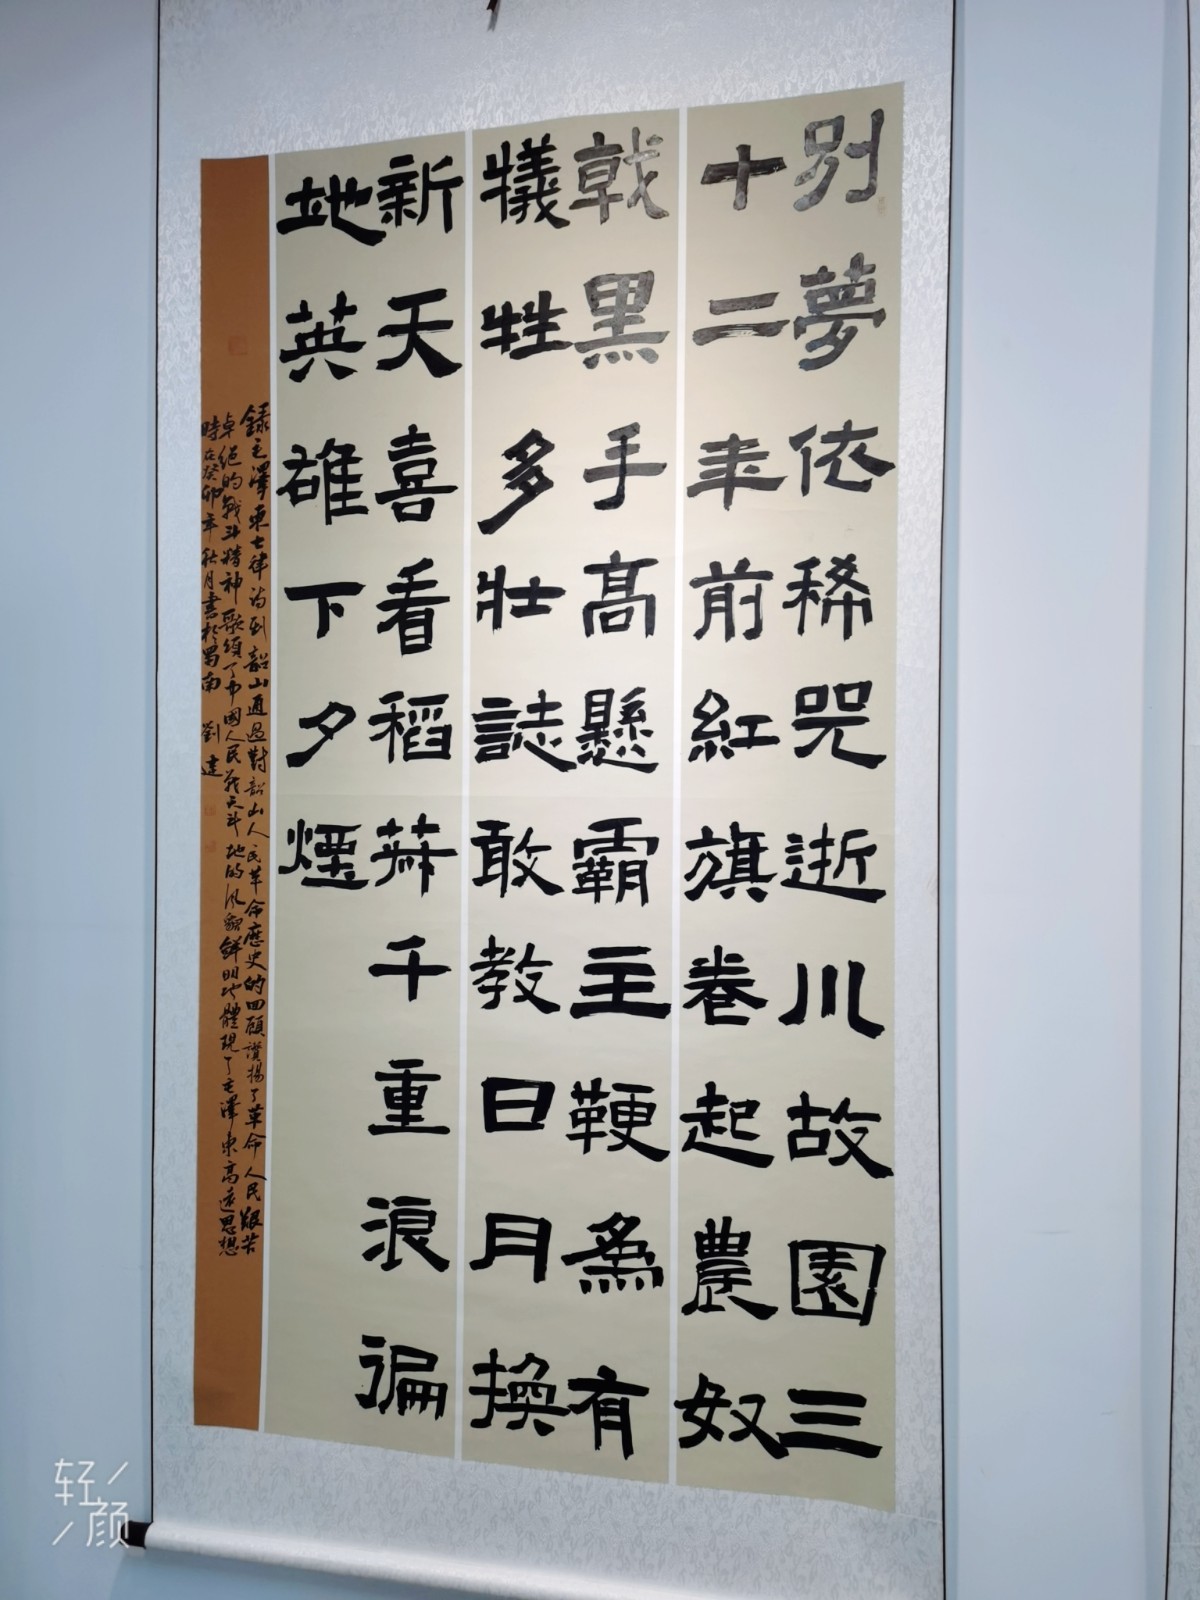 别夢依稀咒逝川故園三
十二年前紅旗卷起農奴
戟黑手高懸霸主鞭為有
犧牲多壯誌敢教日月換
新天喜看稻菽千重浪遍
地英雄下夕煙
錄毛澤東七律為到韶山通過對韶山人民革命歷史的回顧讚揚了革命人民艱苦
卓絕的戰斗精神歌頌了中國人民战天斗地的風貌鲜明地體現了毛澤東高遠思想
時在癸卯年秋月書於蜀南 劉建
轻颜